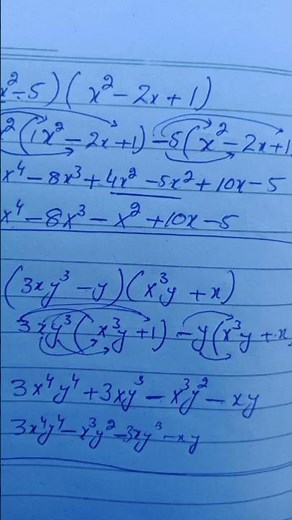 x²-5) ( x² - 2x + 1)
x²(1x² - 2x + 1) - 5(x² - 2x + 1
x⁴ - 8x³ + 4x² - 5x² + 10x - 5
x⁴ - 8x³ - x² + 10x - 5
(3xy³ - y) (x³y + x)
3xy³(x³y + 1) - y(x³y + x
3x⁴y⁴ + 3xy³ - x³y² - xy
3x⁴y⁴ - x³y² - 3xy³ - xy